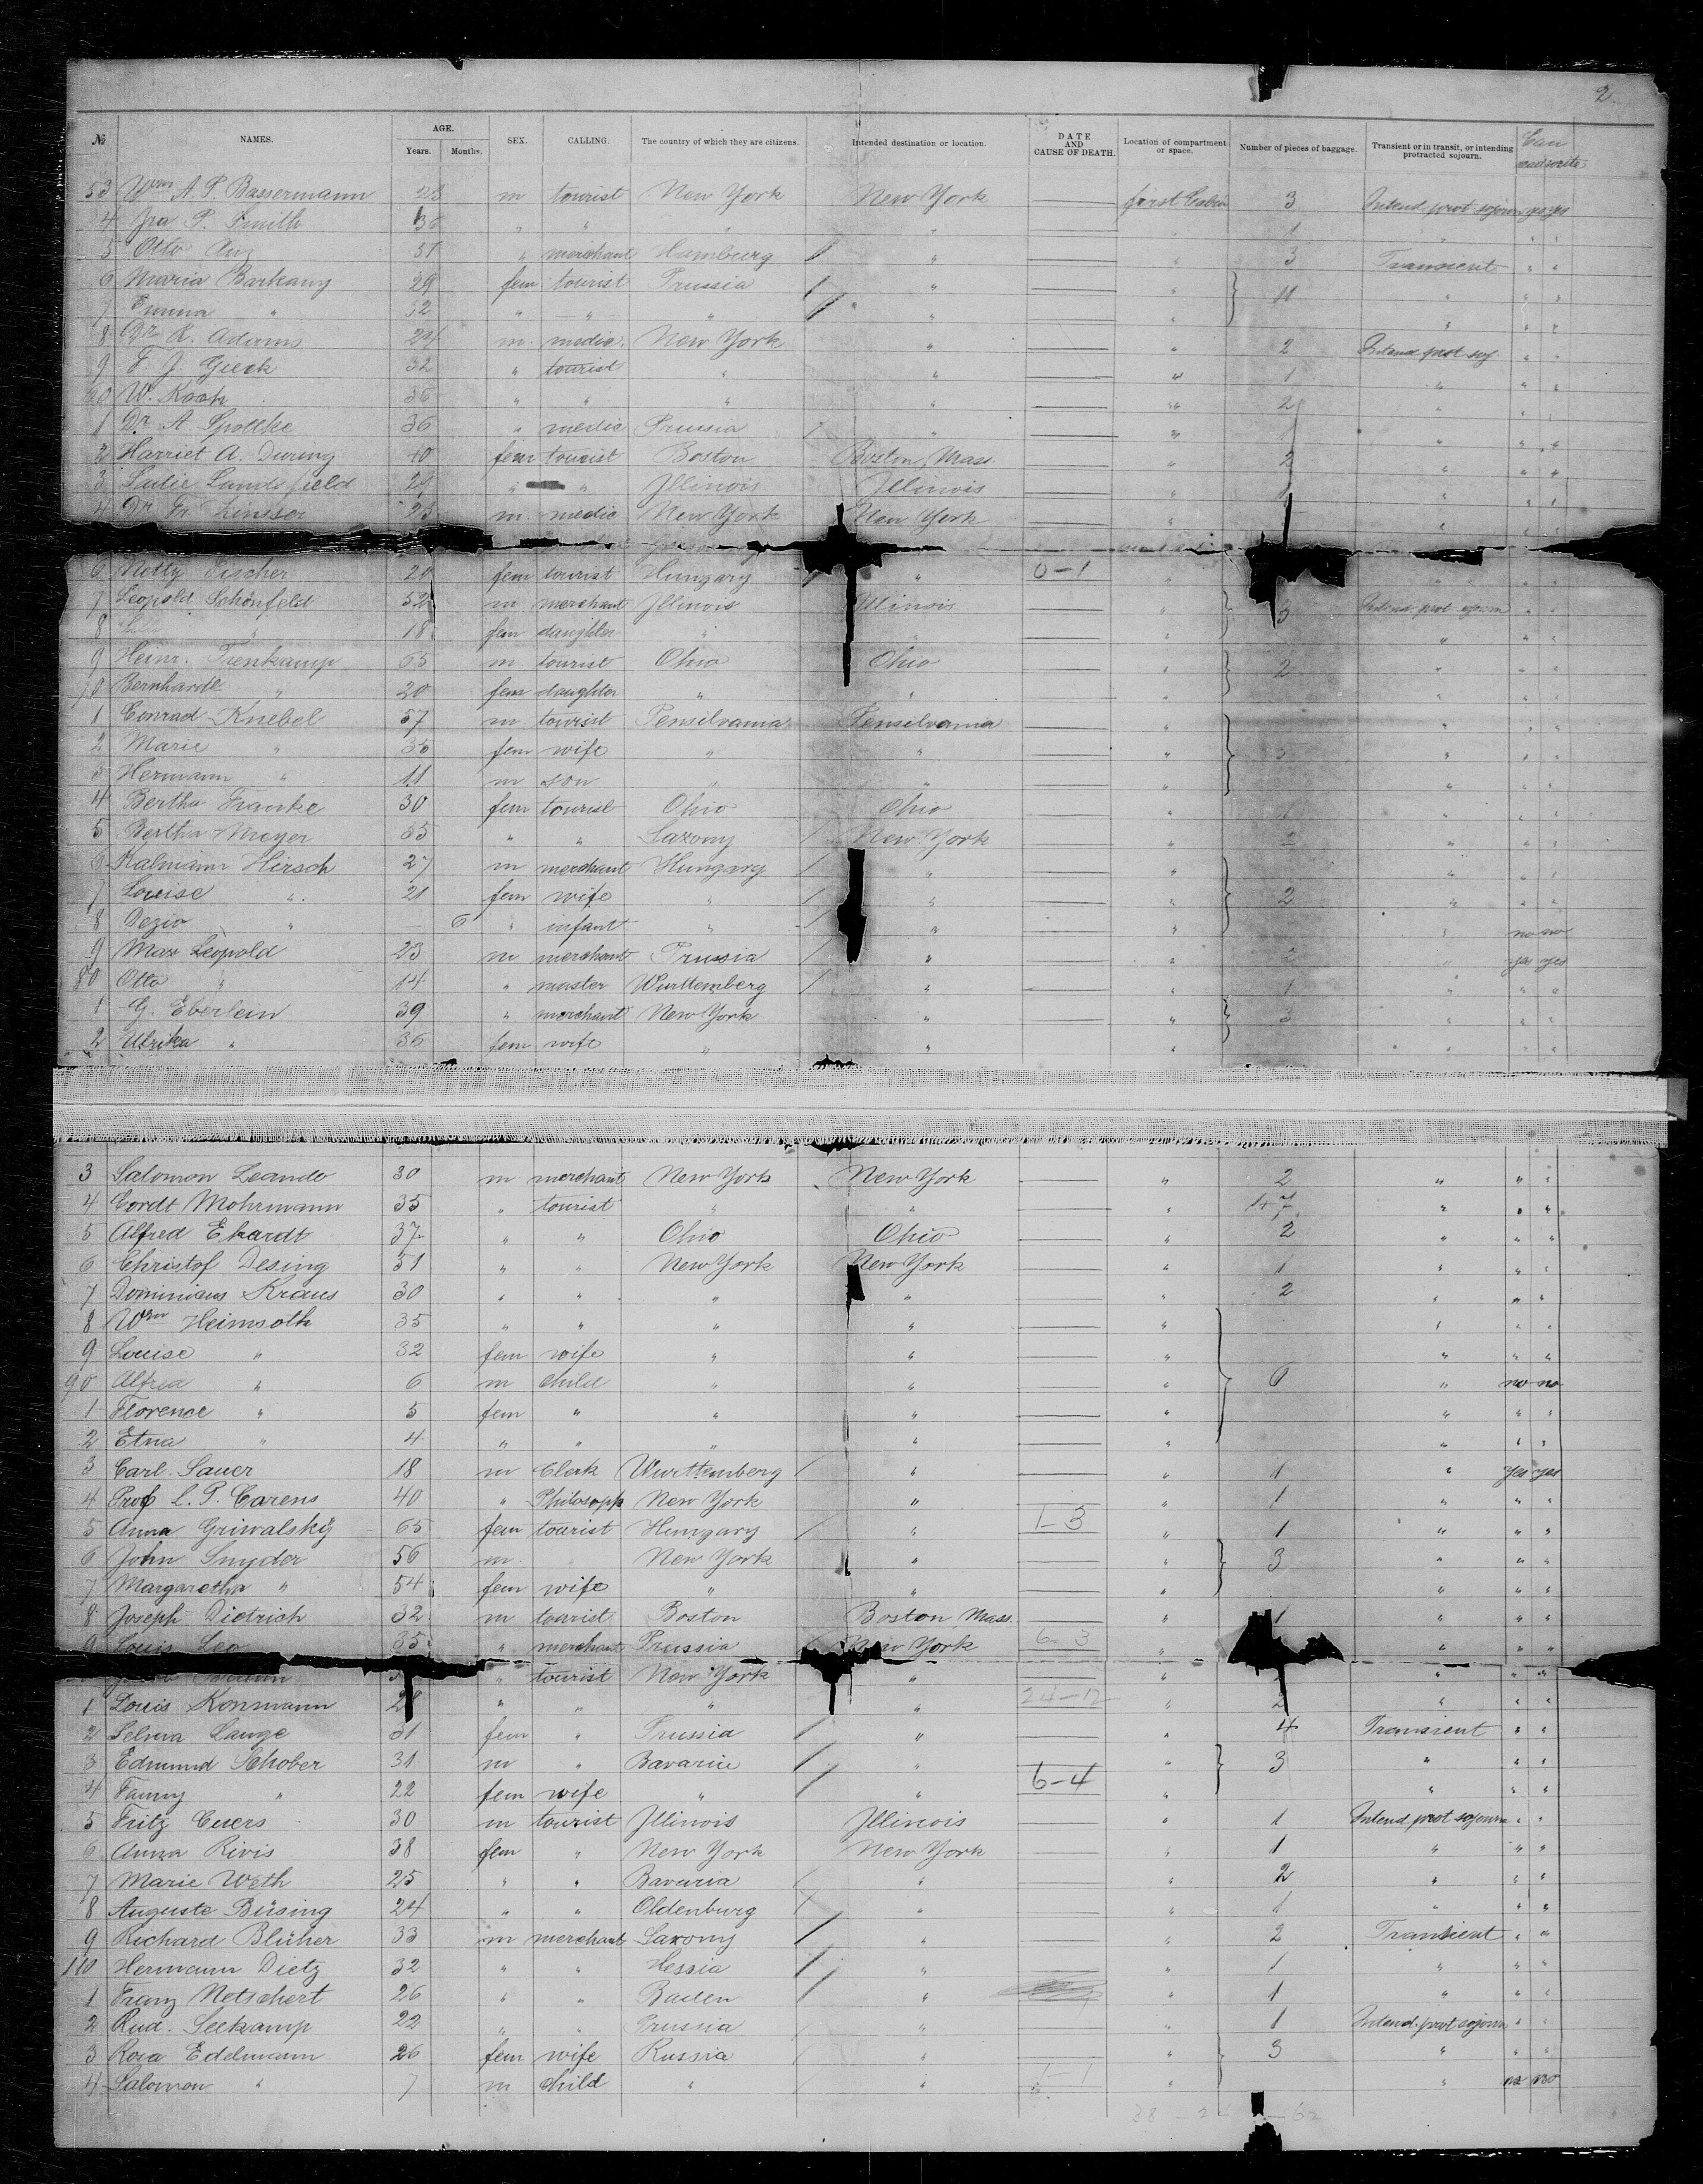 2.
№ NAMES. AGE. Years. Months. SEX. CALLING. The country of which they are citizens. Intended destination or location. DATE AND CAUSE OF DEATH. Location of compartment or space. Number of pieces of baggage. Transient or in transit, or intending protracted sojourn. Can
53 Wm A. P. Bassermann 23 m tourist New York New York first Cabin 3 Intend prot sojourn yes yes
4 Ira P. Smith " " " " " 1 " " "
5 Otto 51 " merchant Hamburg " " 3 Transient " "
6 Maria Barkany 29 fem tourist Prussia " " 11 " " "
7 Emma " 32 " " " " " " " "
8 Dr K. Adams m. medic. New York " " 2 Intend prot soj. " "
9 F. J. Gieck 32 " tourist " " " 1 " " "
60 W. Koch 36 " " " " " 2 " " "
1 Dr A 36 " medic Prussia " " " " "
2 Harriet A. During 40 fem tourist Boston Boston Mass. " 2 " " "
3 Sadie Landsfield 29 " " Illinois Illinois " " " "
4 Dr Fr. Zinsser 23 m. medic New York New York " " " "
6 Netty Fischer 20 fem tourist Hungary " 0-1 "
7 Leopold Schönfeld 52 m merchant Illinois Illinois " 3 Intend prot sojourn " "
8 " 18 fem daughter " " " " " "
9 Heinr. Trenkamp 65 m tourist Ohio Ohio " 2 " " "
70 Bernhardt " 20 fem daughter " " " " " "
1 Conrad Knebel 57 m tourist Pensilvania Pensilvania " " " "
2 Marie " 35 fem wife " " " 3 " " "
3 Hermann " 11 m son " " " " " "
4 Bertha Franke 30 fem tourist Ohio Ohio " 1 " " "
5 Bertha Meyer 35 " " Saxony New York " 2 " " "
6 Kalmann Hirsch 27 m merchant Hungary " " " " "
7 Louise " 21 fem wife " " " 2 " " "
8 Dezio " 6 " infant " " " " no no
9 Max Leopold 23 m merchant Prussia " " 2 " yes yes
80 Otto " 14 " master Wurttemberg " " 1 " " "
1 G. Eberlein 39 " merchant New York " " 3 " " "
2 Ulrika " 36 fem wife " " " " " "
3 Salomon Leando 30 m merchant New York New York " 2 " " "
4 Cordt Mohrmann 35 " tourist " " " " " "
5 Alfred Ehardt 37 " " Ohio Ohio " 2 " " "
6 Christof Desing 51 " " New York New York " 1 " " "
7 Dominicus Kraus 30 " " " " " 2 " " "
8 Wm Heimsoth 35 " " " " " " " "
9 Louise " 32 fem wife " " " " " "
90 Alfred " 6 m child " " " 6 " no no
1 Florence " 5 fem " " " " " " "
2 Etna " 4 " " " " " " " "
3 Carl Sauer 18 m Clerk Wurttemberg " " 1 " yes yes
4 Prof L. P. Carens 40 " Philosoph New York " " 1 " " "
5 Anna Griwalsky 65 fem tourist Hungary " 1-3 " 1 " " "
6 John Snyder 56 m. New York " " 3 " " "
7 Margaretha " 54 fem wife " " " " " "
8 Joseph Dietrich 32 m tourist Boston Boston Mass. " 1 " " "
9 Louis Leo 35 " merchant Prussia New York 6-3 " " " "
" tourist New York " " " " "
1 Louis Konmann 28 " " " " 24-12 " 2 " " "
2 Selma Lange 31 fem " Prussia " " 4 Transient " "
3 Edmund Schober 31 m " Bavaria " " 3 " " "
4 Fanny " 22 fem wife " " 6-4 " " " "
5 Fritz Cuers 30 m tourist Illinois Illinois " 1 Intend prot sojourn " "
6 Anna Rivis 38 fem " New York New York " 1 " " "
7 Marie Weth 25 " " Bavaria " " 2 " " "
8 Auguste Büsing 24 " " Oldenburg " " 1 " " "
9 Richard Blüher 33 m merchant Saxony " " 2 Transient " "
110 Hermann Dietz 32 " " Hessia " " 1 " " "
1 Franz Netschert 26 " " Baden " " 1 " " "
2 Rud. Seekamp 22 " " Prussia " " 1 Intend. prot sojourn " "
3 Rosa Edelmann 26 fem wife Russia " " 3 " " "
4 Salomon " 7 m child " " 1-1 " " no no